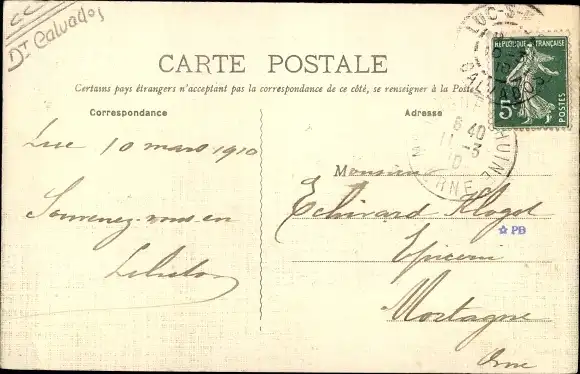 Dt Calvados
CARTE POSTALE
Certains pays étrangers n'acceptant pas la correspondance de ce côté, se renseigner à la Poste
Correspondance
Luc 10 mars 1910
Souvenez-vous en
Adresse
RÉPUBLIQUE FRANÇAISE
5c
POSTES
LUC-S-
CALVADOS
6 40
11 -3
10
ORNE
Monsieur
Klogot
Epicier
Mortagne
Orne
PB